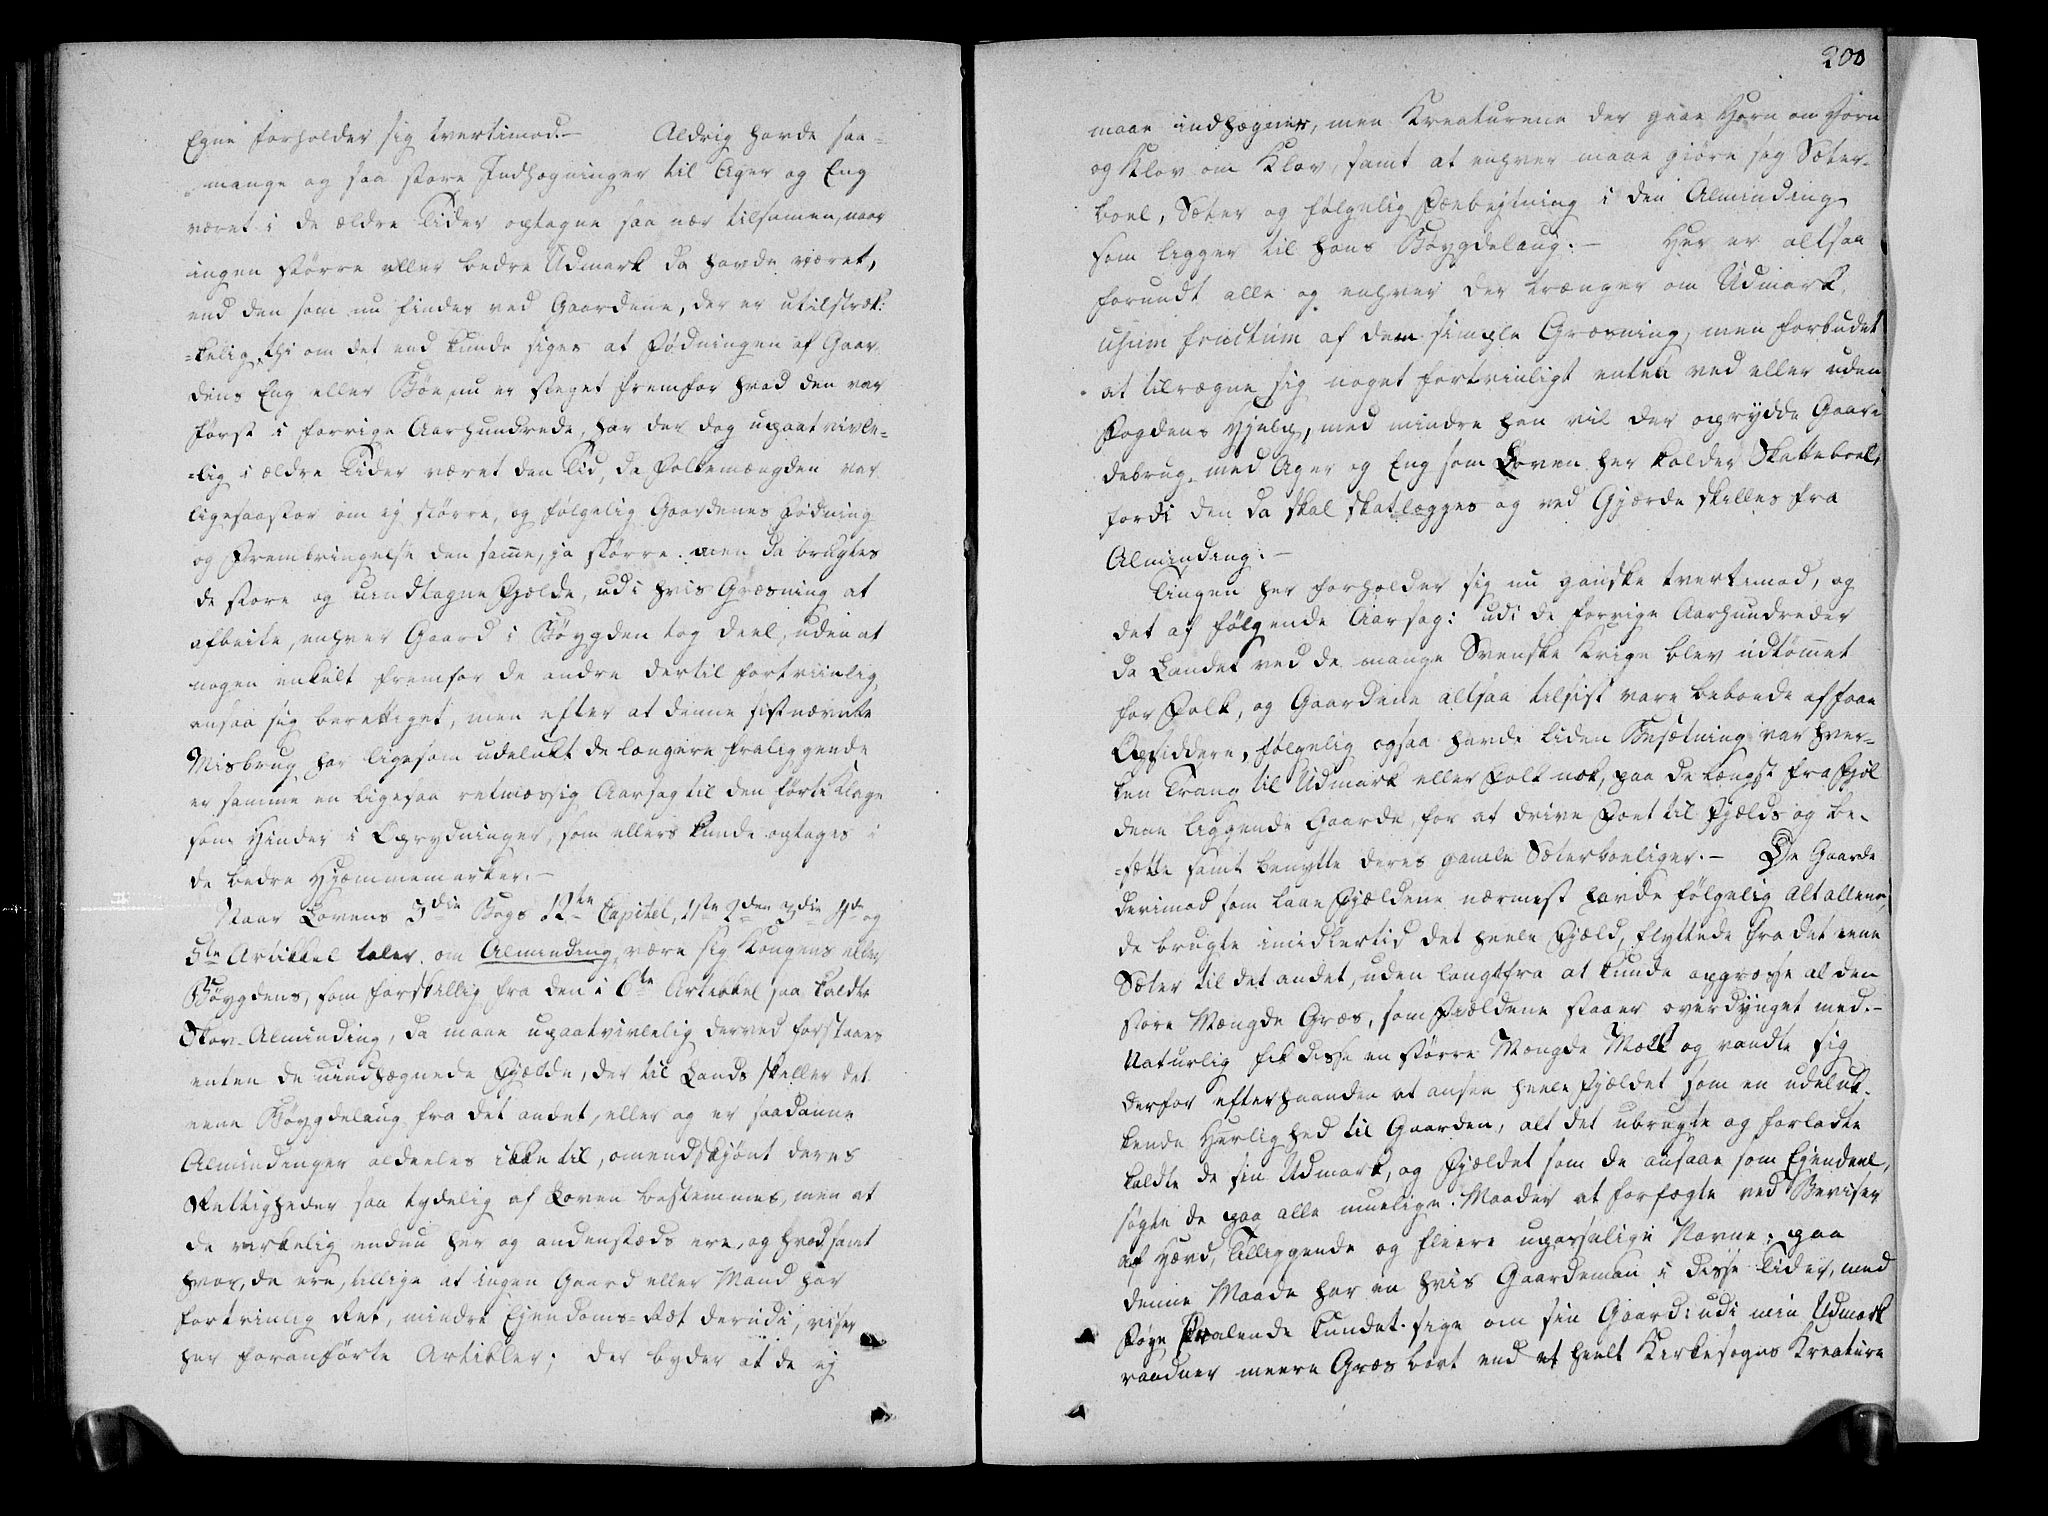 Egne forholder sig tvertimod.— Aldrig havde saa-
mange og saa store Indhægninger til Ager og Eng
været i de ældre Tider optagne saa nær tilsamen, naar
ingen større eller bedre Udmark da havde været,
end den som nu findes ved Gaardene, der er utilstræk-
-kelig, thi om det end kunde siges at Fødningen af Gaar-
dens Eng eller Bøe, nu er steget fremfor hvad den var
først i forrige Aarhundrede, har der dog upaatvivle-
-lig i ældre Tider været den Tid, da Folkemængden var
ligesaastor om ej større, og følgelig Gaardenes Fødning
og Frembringelse den samme, ja større. men da brugtes
de store og uindtagne Fjælde, udi hvis Græsning at
afbeite, enhver Gaard i Bøygden tog deel, uden at
nogen enkelt fremfor de andre dertil fortriinlig
ansaa sig berettiget, men efter at denne sistnævnte
Misbrug har ligesom udelukt de længere fraliggende
er samme en ligesaa retmæssig Aarsag til den førte Klage
som Hinder i Oprydninger, som ellers kunde optages i
de bedre Hjemmemarker.—
Naar Lovens 3die Bogs 12te Capitel, 1ste 2den 3die 4de og
5te Artikkel taler om Alminding, være sig Kongens eller
Bøygdens, som forskillig fra den i 6te Artikkel saa kaldte
Skov-Alminding, da maae upaatvivlelig derved forstaaes
enten de uindhægnede Fjælde, der til Lands skiller det
eene Bøygdelaug fra det andet, eller og er saadanne
Almindinger aldeeles ikke til, omendskjønt deres
Rettigheder saa tydelig af Loven bestemmes, men at
de virkelig endnu her og andenstæds ere, og hvad samt
hvor, de ere, tillige at ingen Gaard eller Mand har
fortrinlig Ret, mindre Ejendoms-Ræt derudi, viser
her foranførte Artikler; der byder at de ej
200
maae indhægnes, men Kreaturene der gaae Horn om Horn
og Klov om Klov, samt at enhver maae giøre sig Sæter-
boel, Sæter og følgelig Fæebejtning i den Alminding
som ligger til hans Bøygdelaug.— Her er altsaa
forundt alle og enhver der trænger om Udmark,
usum fructum af den simple Græsning, men forbudet
at tilregne sig noget fortrinligt enten ved eller uden
Fogdens Hjelp, med mindre han vil der oprydde Gaar-
debrug, med Ager og Eng som Loven her kalder Skatteboel,
fordi den da skal skatlægges og ved Gjærde skilles fra
Alminding.—
Tingen her forholder sig nu ganske tvertimod, og
det af følgende Aarsag: udi de forrige Aarhundreder
da Landet ved de mange Svenske Krige blev udtømmet
for Folk, og Gaardene altsaa tilsist vare beboede af faae
Opsiddere, følgelig ogsaa havde liden Besætning var hver-
ken Trang til Udmark eller Folk nok, paa de længst fra Fjel
dene liggende Gaarde, for at drive Foet til Fjælds og be-
-sætte samt benytte deres gamle Sæterboeliger.— De Gaarde
derimod som laae Fjældene nærmest havde følgelig alt allene,
de brugte imidlertid det heele Fjæld, flyttede fra det eene
Sæter til det andet, uden langtfra at kunde opgræsse al den
store Mængde Græs, som Fjældene staaer overdynget med.—
Naturlig fik disse en større Mængde Mælk og vandte sig
derfor efterhaanden at ansee heele Fjældet som en udeluk-
kende Herlighed til Gaarden, alt det ubrugte og forladte
kaldte de sin Udmark, og Fjældet som de ansaae som Ejendeel,
søgte de paa alle muelige Maader at forfægte ved Beviser
af Hævd, Tilliggende og fleere upasselige Navne; paa
denne Maade har en hvis Gaardeman i disse Tider, med
Føye pralende kundet sige om sin Gaard: udi min Udmark
raadner meere Græs bort end et heelt Kirkesogns Kreature